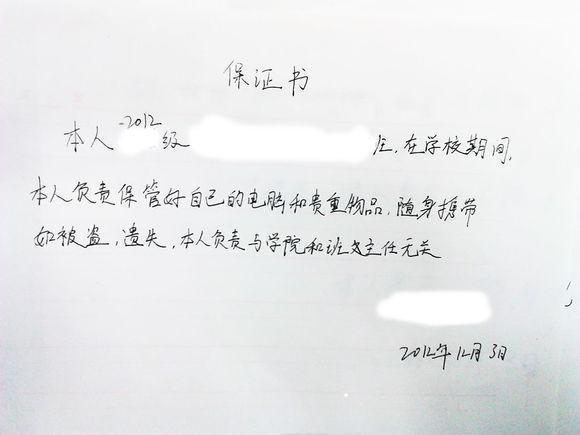 保证书
本人 2012级 在学校期间,
本人负责保管好自己的电脑和贵重物品,随身携带
如被盗,遗失,本人负责与学院和班主任无关
2012年12月3日